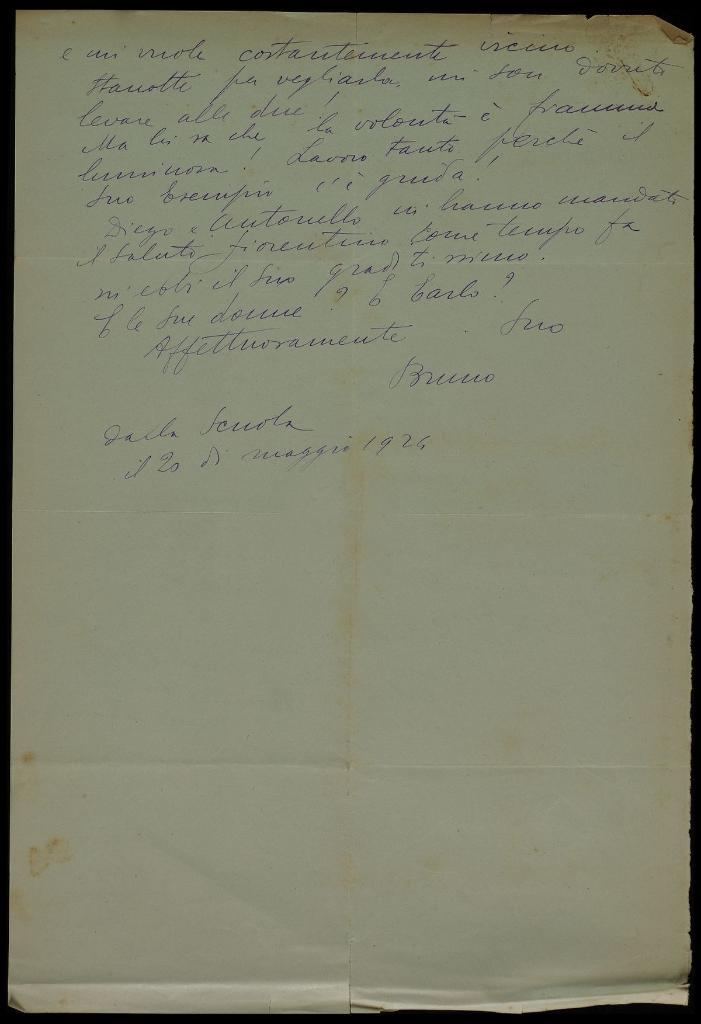 e mi vuole costantemente vicino.
Stanotte per vegliarla, mi son dovuto
levare alle due!
Ma lei sa che la volontà è fiamma
luminosa! Lavoro tanto perchè il
Suo Esempio c'è guida!
Diego e Antonello mi hanno mandato
il saluto fiorentino come tempo fa
mi ebbi il Suo graditissimo.
E le Sue donne? E Carlo?
Affettuosamente Suo
Bruno
Dalla Scuola
il 20 di maggio 1926